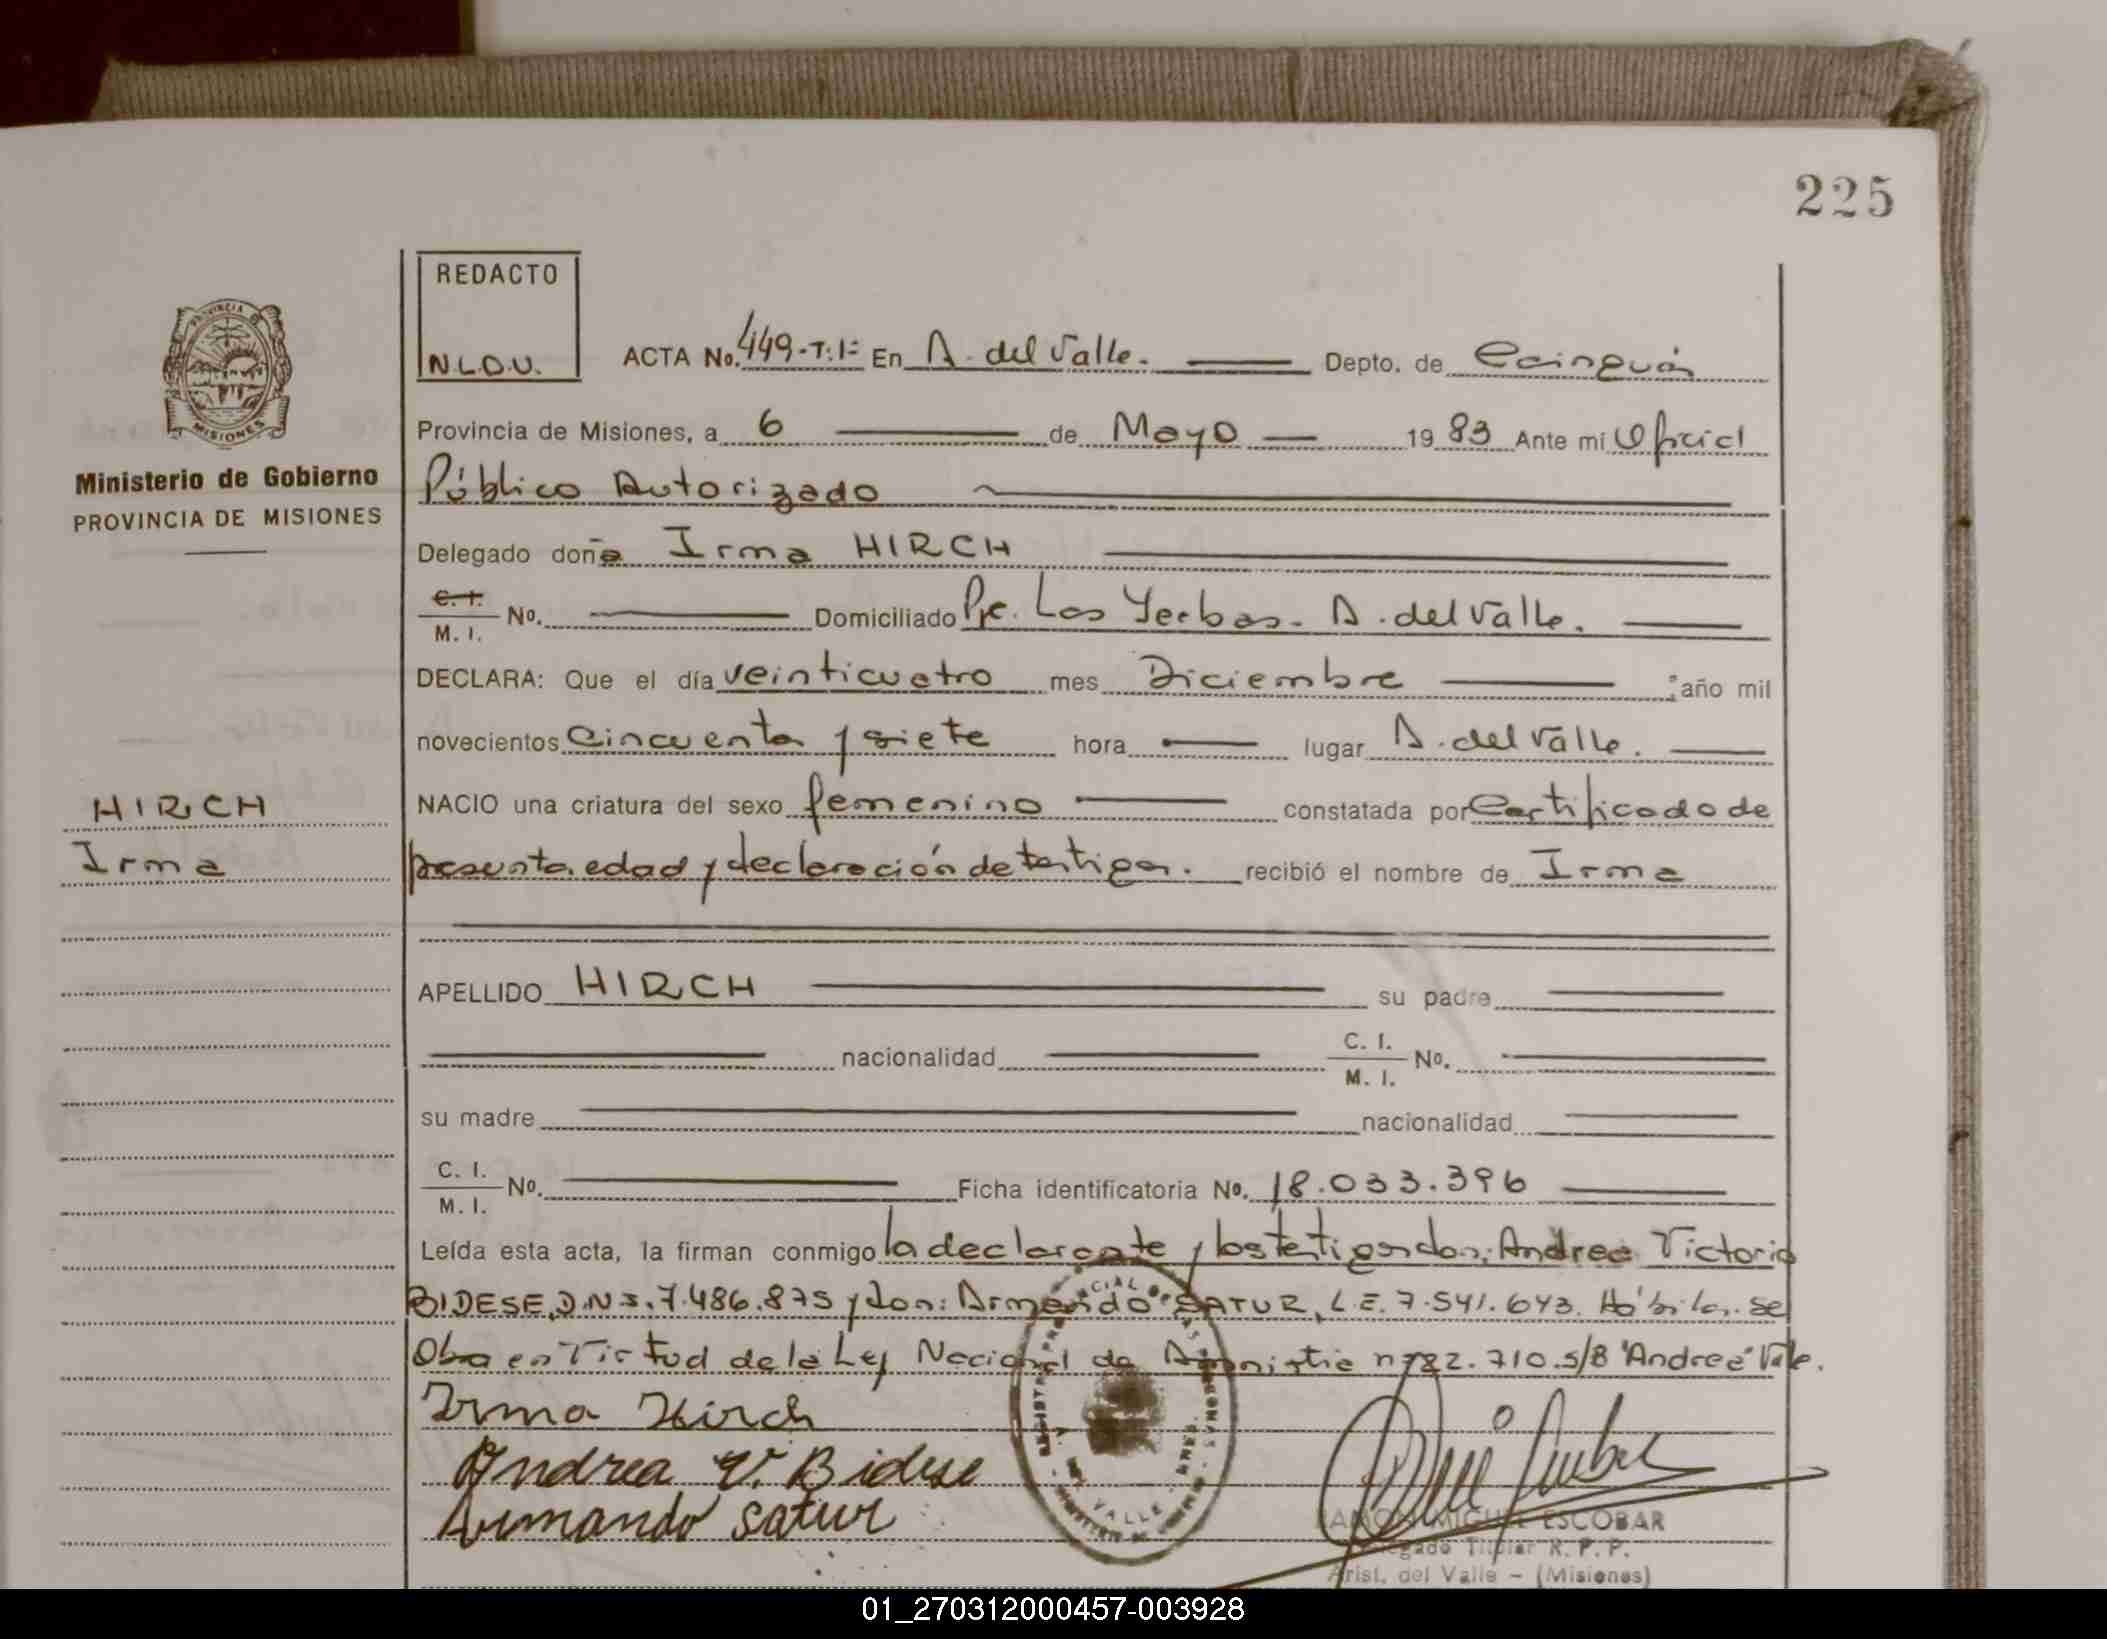 225
REDACTO
N.L.O.U.
ACTA No. 449-T:1= En A. del Valle. Depto. de Cainguás
PROVINCIA
MISIONES
Ministerio de Gobierno
PROVINCIA DE MISIONES
Provincia de Misiones, a 6 de Mayo 1983 Ante mi Oficial
Público Autorizado
Delegado doña Irma HIRCH
C. I.
M. I. No. Domiciliado Pje. Las Yerbas. A. del Valle.
DECLARA: Que el día veinticuatro mes Diciembre ; año mil
novecientos cincuenta y siete hora lugar A. del Valle.
HIRCH
Irma
NACIO una criatura del sexo femenino constatada por Certificado de
presunta edad y declaración de testigos. recibió el nombre de Irma
APELLIDO HIRCH su padre
nacionalidad C. I.
M. I. No.
su madre nacionalidad
C. I.
M. I. No. Ficha identificatoria No. 18.033.396
Leída esta acta, la firman conmigo la declarante y los testigos don: Andrea Victoria
BIDESE, D.N.I. 7.486.875 y don: Armando SATUR, L.E. 7.541.643. Hábiles. Se
Obra en Virtud de la Ley Nacional de Amnistia nº 22.710. S/B "Andrea" Vale.
Irma Hirch
Andrea V. Bidese
Armando Satur
RAMON MIGUEL ESCOBAR
Delegado Titular R. P. P.
Arist. del Valle - (Misiones)
01_270312000457-003928